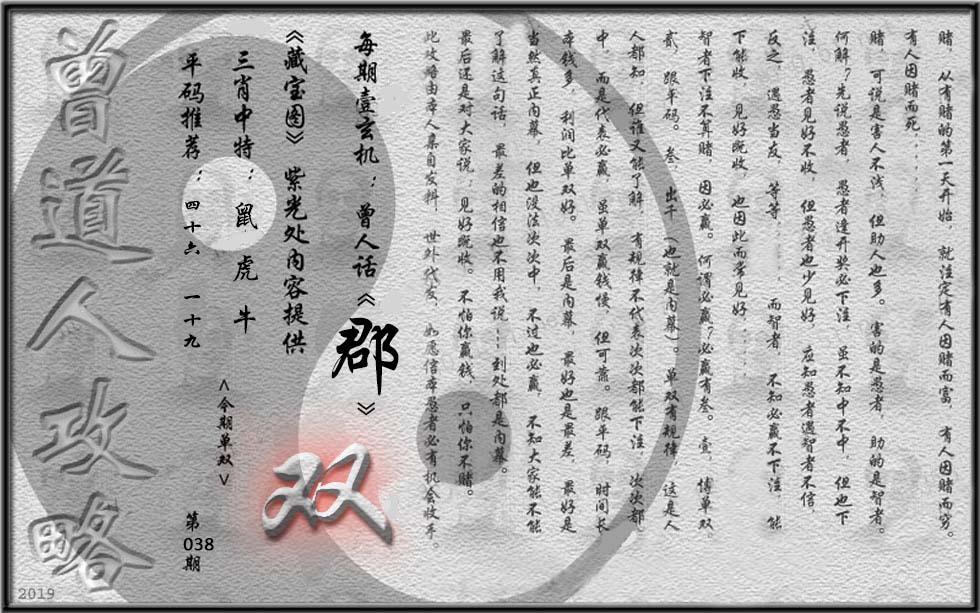 赌，从有赌的第一天开始，就注定有人因赌而富，有人因赌而穷。
有人因赌而死．．．．．
赌，可说是害人不浅，但助人也多。害的是愚者，助的是智者。
何解？先说愚者，愚者逢开奖必下注，虽不知中不中，但也下
注，愚者见好不收，但愚者也少见好，应知愚者遇智者不信，
反之，遇愁当友，等等．．．．．而智者，不知必赢不下注，能
下能收，见好既收，也因此而常见好．．．．
智者下注不算赌，因必赢。何谓必赢？必赢有叁。壹，博单双，
贰，跟平码。叁，出千（也就是内幕）。单双有规律，这是人
人都知，但谁又能了解，有规律不代表次次都能下注，次次都
中，而是代表必赢，虽单双赢钱慢，但可靠。跟平码，时间长
本钱多，利润比单双好。最后是内幕，最好也是最差，最好是
当然真正内幕，但也没法次次中，不过也必赢，不知大家能不能
了解这句话，最差的相信也不用我说┅到处都是内幕。
最后还是对大家说：见好既收。不怕你赢钱，只怕你不赌。
此攻略由本人集自发料，世外代友，如愿信本愚者必有机会收手。
每期壹玄机：曾人话《郡》
《藏宝图》紫光处内容提供
三肖中特：鼠 虎 牛
平码推荐：四十六 一十九
<今期单双>
双
第038期
曾道人攻略
2019